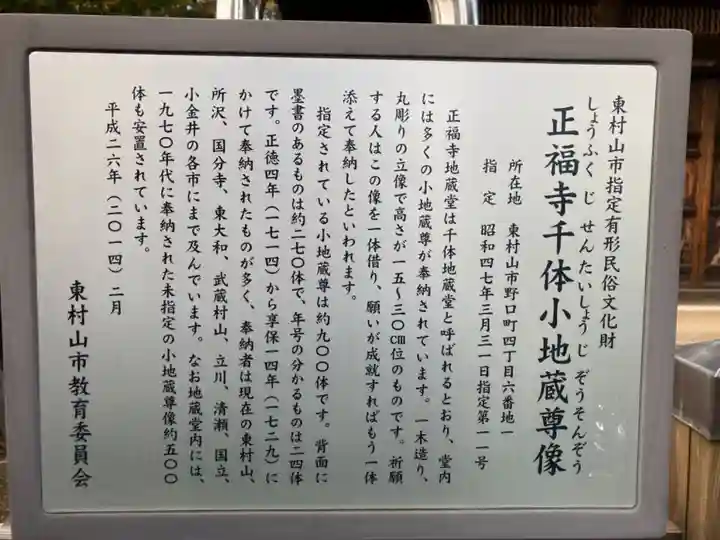 東村山市指定有形民俗文化財
しょうふくじせんたいしょうじぞうそんぞう
正福寺千体小地蔵尊像
所在地 東村山市野口町四丁目六番地一
指定 昭和四七年三月三一日指定第一一号
正福寺地蔵堂は千体地蔵堂と呼ばれるとおり、堂内
には多くの小地蔵尊が奉納されています。一木造り、
丸彫りの立像で高さが一五～三〇㎝位のものです。祈願
する人はこの像を一体借り、願いが成就すればもう一体
添えて奉納したといわれます。
指定されている小地蔵尊は約九〇〇体です。背面に
墨書のあるものは約二七〇体で、年号の分かるものは二四体
です。正徳四年（一七一四）から享保一四年（一七二九）に
かけて奉納されたものが多く、奉納者は現在の東村山、
所沢、国分寺、東大和、武蔵村山、立川、清瀬、国立、
小金井の各市にまで及んでいます。なお地蔵堂内には、
一九七〇年代に奉納された未指定の小地蔵尊像約五〇〇
体も安置されています。
平成二六年（二〇一四）二月
東村山市教育委員会